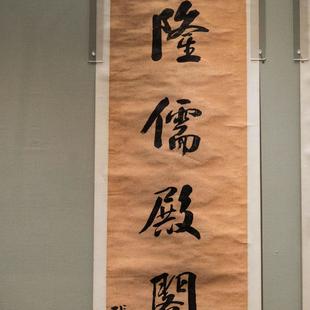 隆儒殿閣